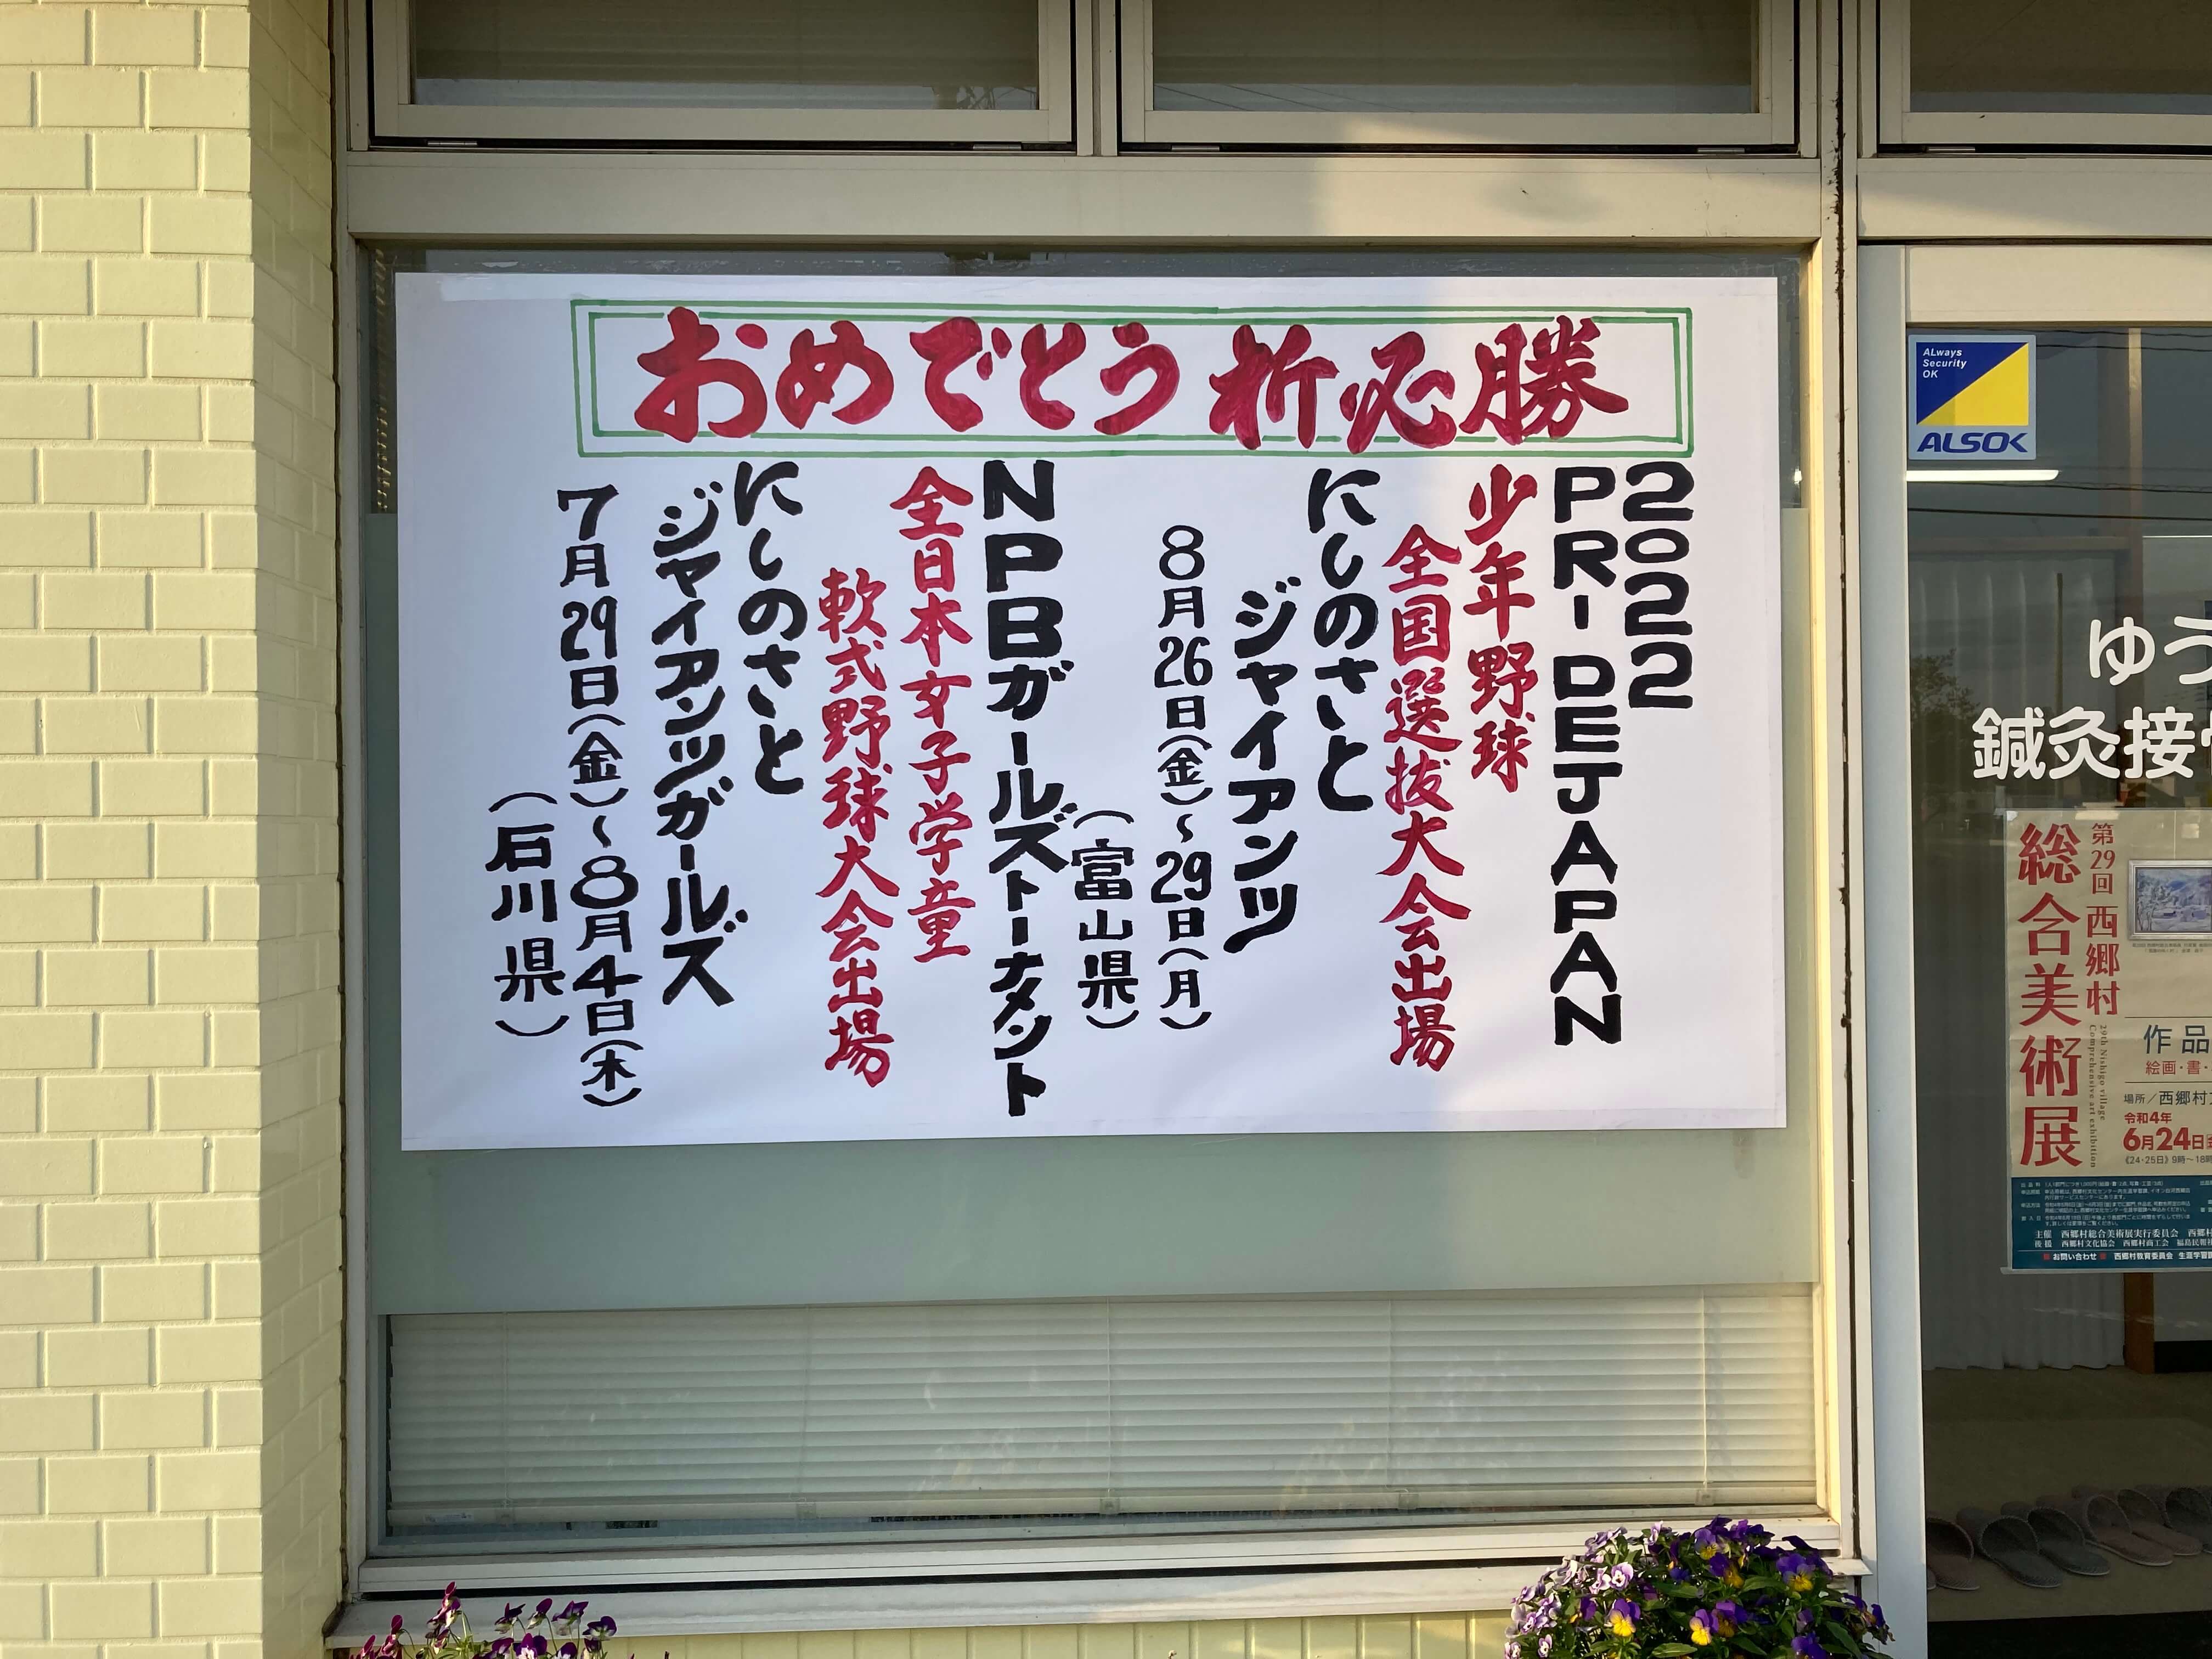 おめでとう 祈必勝
2022
PRIDE JAPAN
少年野球
全国選抜大会出場
にしのさと
ジャイアンツ
8月26日(金)~29日(月)
(富山県)
NPBガールズトーナメント
全日本女子学童
軟式野球大会出場
にしのさと
ジャイアンツガールズ
7月29日(金)~8月4日(木)
(石川県)
ALways
Security
OK
ALSOK
ゆう
鍼灸接
第29回 西郷村
総合美術展
29th Nishigo village
Comprehensive art exhibition
作品
絵画・書・
場所／西郷村文
令和4年
6月24日
《24・25日》9時～18時
主催 西郷村総合美術展実行委員会 西郷村
後援 西郷村文化協会 西郷村商工会 福島民報社
お問い合わせ 西郷村教育委員会 生涯学習課